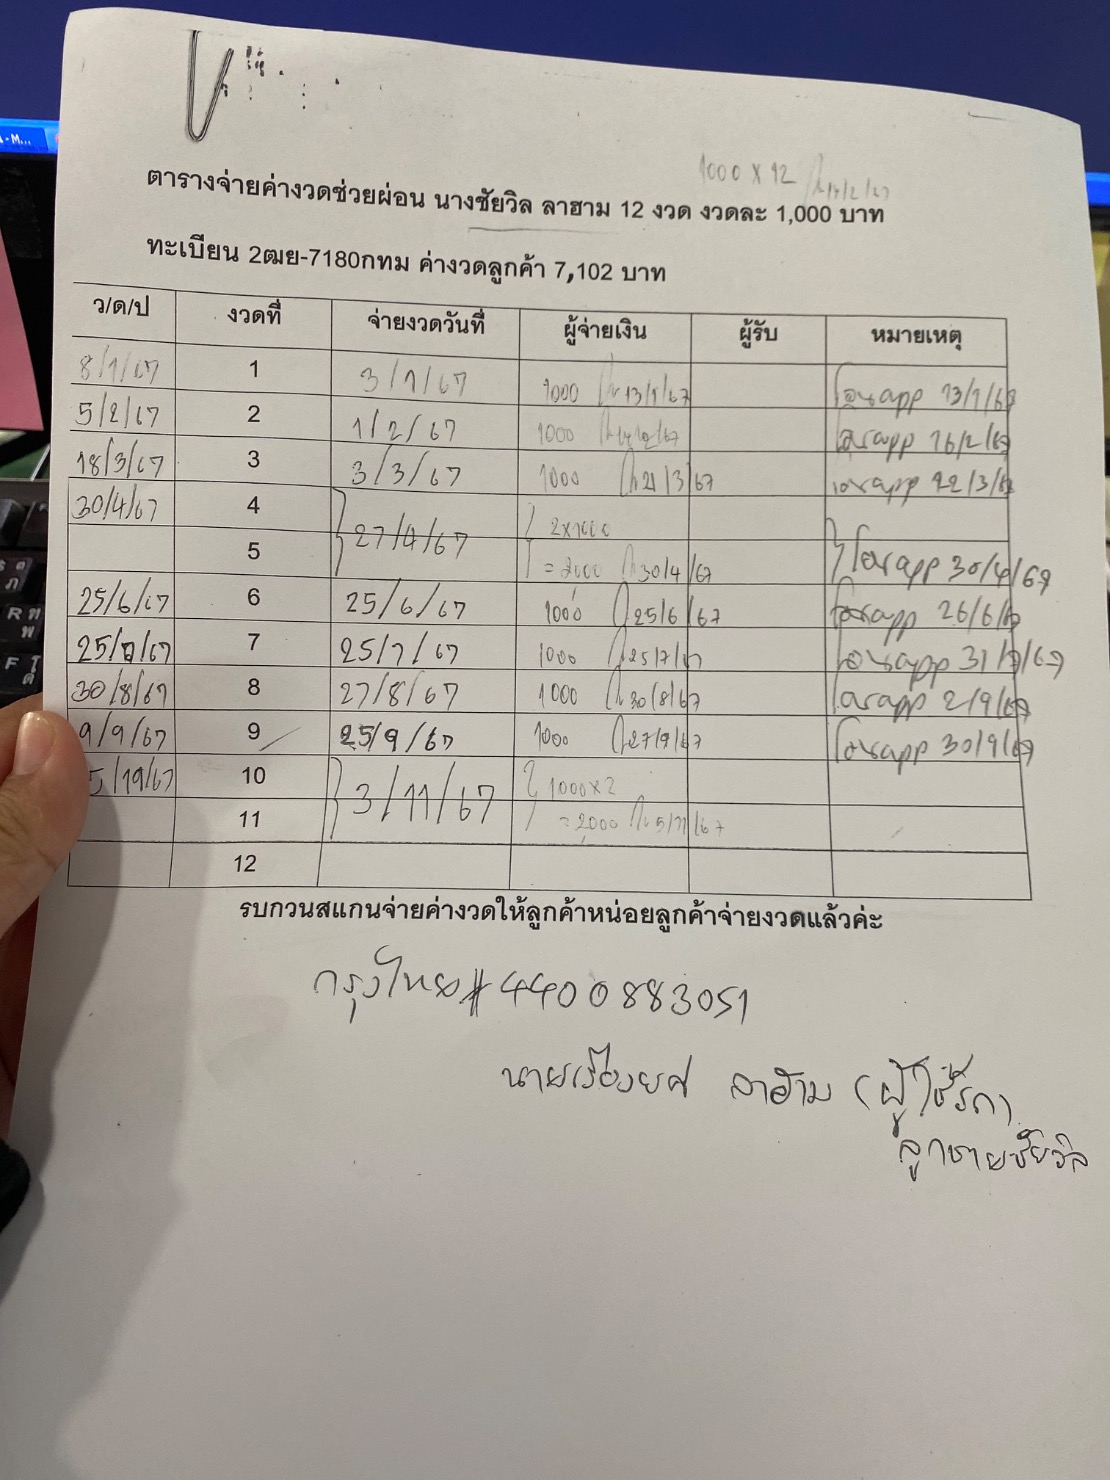 1000 x 12
ตารางจ่ายค่างวดช่วยผ่อน นางชัยวิล ลาฮาม 12 งวด งวดละ 1,000 บาท
ทะเบียน 2ฒย-7180กทม ค่างวดลูกค้า 7,102 บาท
ว/ด/ป งวดที่ จ่ายงวดวันที่ ผู้จ่ายเงิน ผู้รับ หมายเหตุ
8/1/67 1 3/1/67 1000 13/1/67 โอนapp 13/1/67
5/2/67 2 1/2/67 1000 โอนapp 16/2/67
18/3/67 3 3/3/67 1000 21/3/67 โอนapp 22/3/67
30/4/67 4 27/4/67 2x1000
5 = 2000 30/4/67 โอนapp 30/4/67
25/6/67 6 25/6/67 1000 25/6/67 โอนapp 26/6/67
25/7/67 7 25/7/67 1000 25/7/67 โอนapp 31/7/67
30/8/67 8 27/8/67 1000 30/8/67 โอนapp 2/9/67
9/9/67 9 25/9/67 1000 27/9/67 โอนapp 30/9/67
10 3/11/67 1000x2
11 = 2,000 5/11/67
12
รบกวนสแกนจ่ายค่างวดให้ลูกค้าหน่อยลูกค้าจ่ายงวดแล้วค่ะ
กรุงไทย# 4400883051
นายเรืองยศ ลาฮาม (ผู้ใช้รถ)
ลูกชายชัยวิล
R พ
F ด